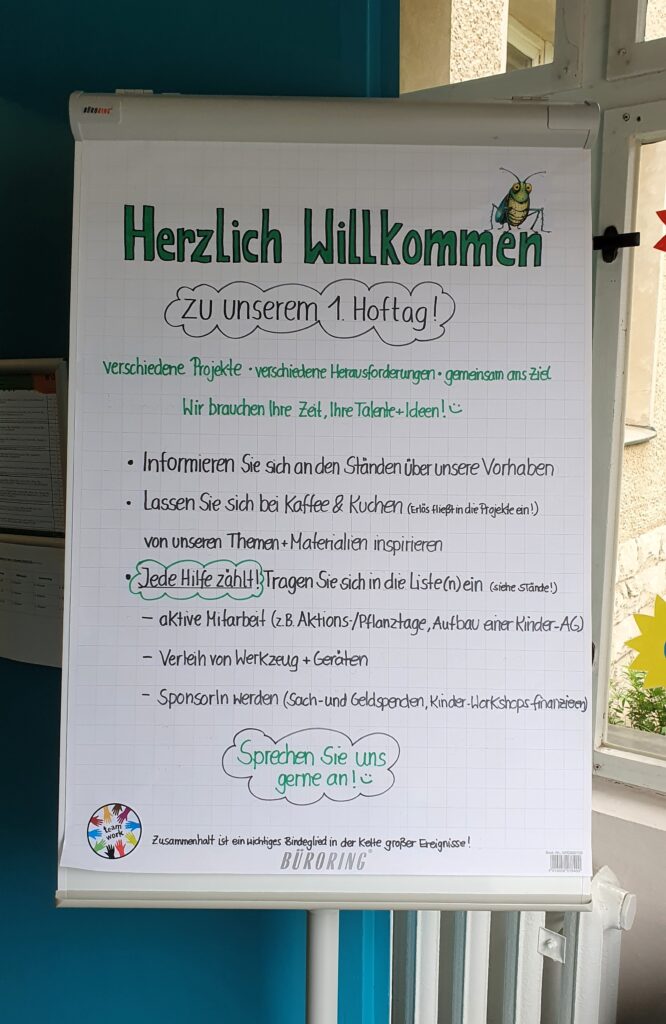 BÜRORING
Herzlich Willkommen
zu unserem 1. Hoftag!
verschiedene Projekte · verschiedene Herausforderungen · gemeinsam ans Ziel
Wir brauchen Ihre Zeit, Ihre Talente + Ideen!
• Informieren Sie sich an den Ständen über unsere Vorhaben
• Lassen Sie sich bei Kaffee & Kuchen (Erlös fließt in die Projekte ein!)
von unseren Themen + Materialien inspirieren
• Jede Hilfe zählt! Tragen Sie sich in die Liste(n) ein (siehe Stände!)
– aktive Mitarbeit (z.B. Aktions-/Pflanztage, Aufbau einer Kinder-AG)
– Verleih von Werkzeug + Geräten
– SponsorIn werden (Sach- und Geldspenden, Kinder-Workshops finanzieren)
Sprechen Sie uns
gerne an!
team
work
Zusammenhalt ist ein wichtiges Bindeglied in der Kette großer Ereignisse!
BÜRORING